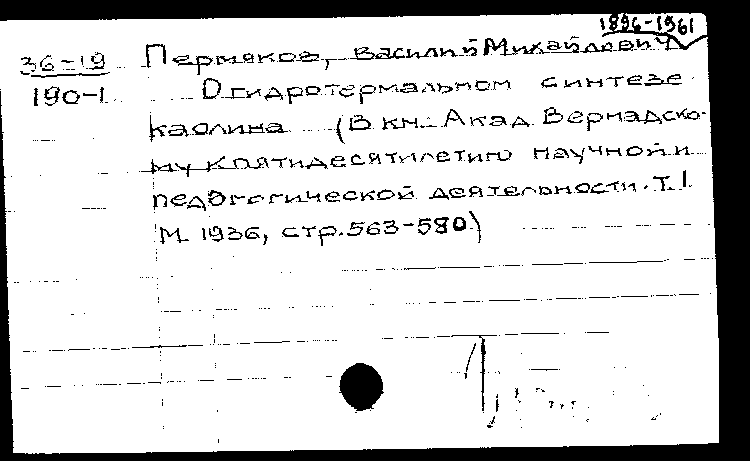 1896-1961
36-19 Пермяков, Василий Михайлович
190-1 О гидротермальном синтезе
каолина (В кн. Акад Вернадско-
му к пятидесятилетию научной и
педагогической деятельности. Т. I.
М. 1936, стр. 563-580)